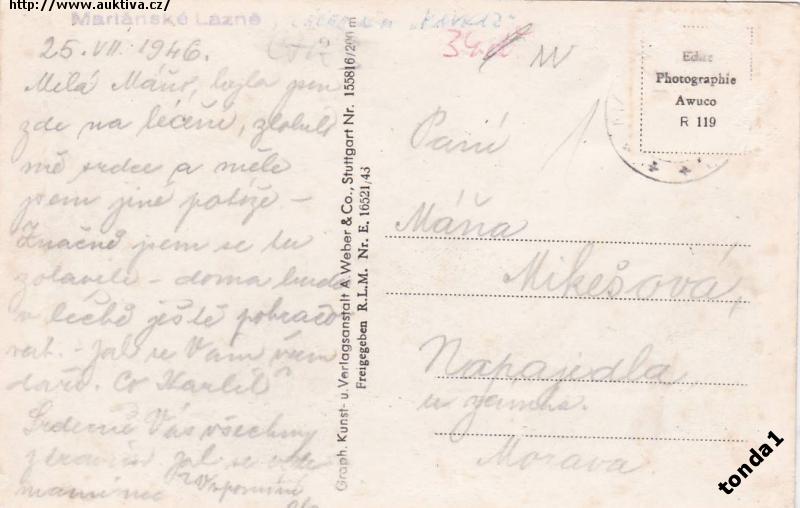 http://www.auktiva.cz/
Mariánské Lázně
25. VII. 1946.
Milá Máňo, byla jsem
zde na léčení, zlobilo
mě srdce a měla
jsem jiné potíže –
Značně jsem se tu
zotavila – doma budu
v léčbě ještě pokračo
vat. Jak se Vám všem
daří. Co Karlíč
Srdečně Vás všechny
zdravím jak se vede
mamince
Vzpomíná
Graph. Kunst- u. Verlagsanstalt A. Weber & Co., Stuttgart Nr. 155816/200 m
Freigegeben R.L.M. Nr. E. 16521/43
Echte
Photographie
Awuco
R 119
Paní
Máňa
Mikešová,
Napajedla
u zámku.
Morava.
tonda1